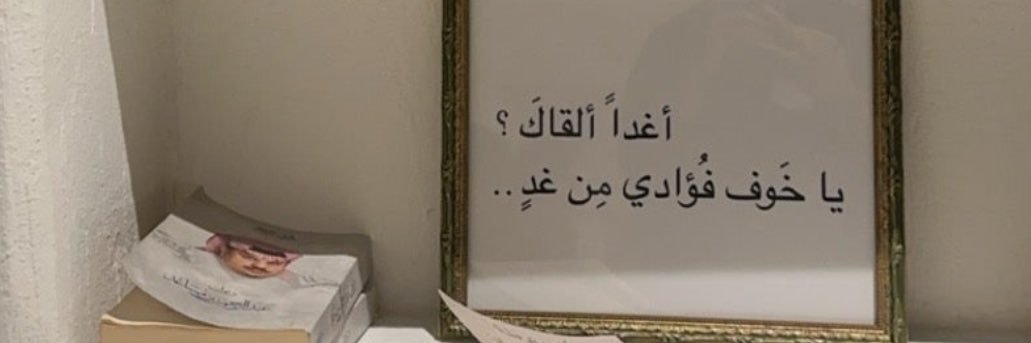 أغداً ألقاكَ ؟
يا خَوف فُؤادي مِن غدٍ ..